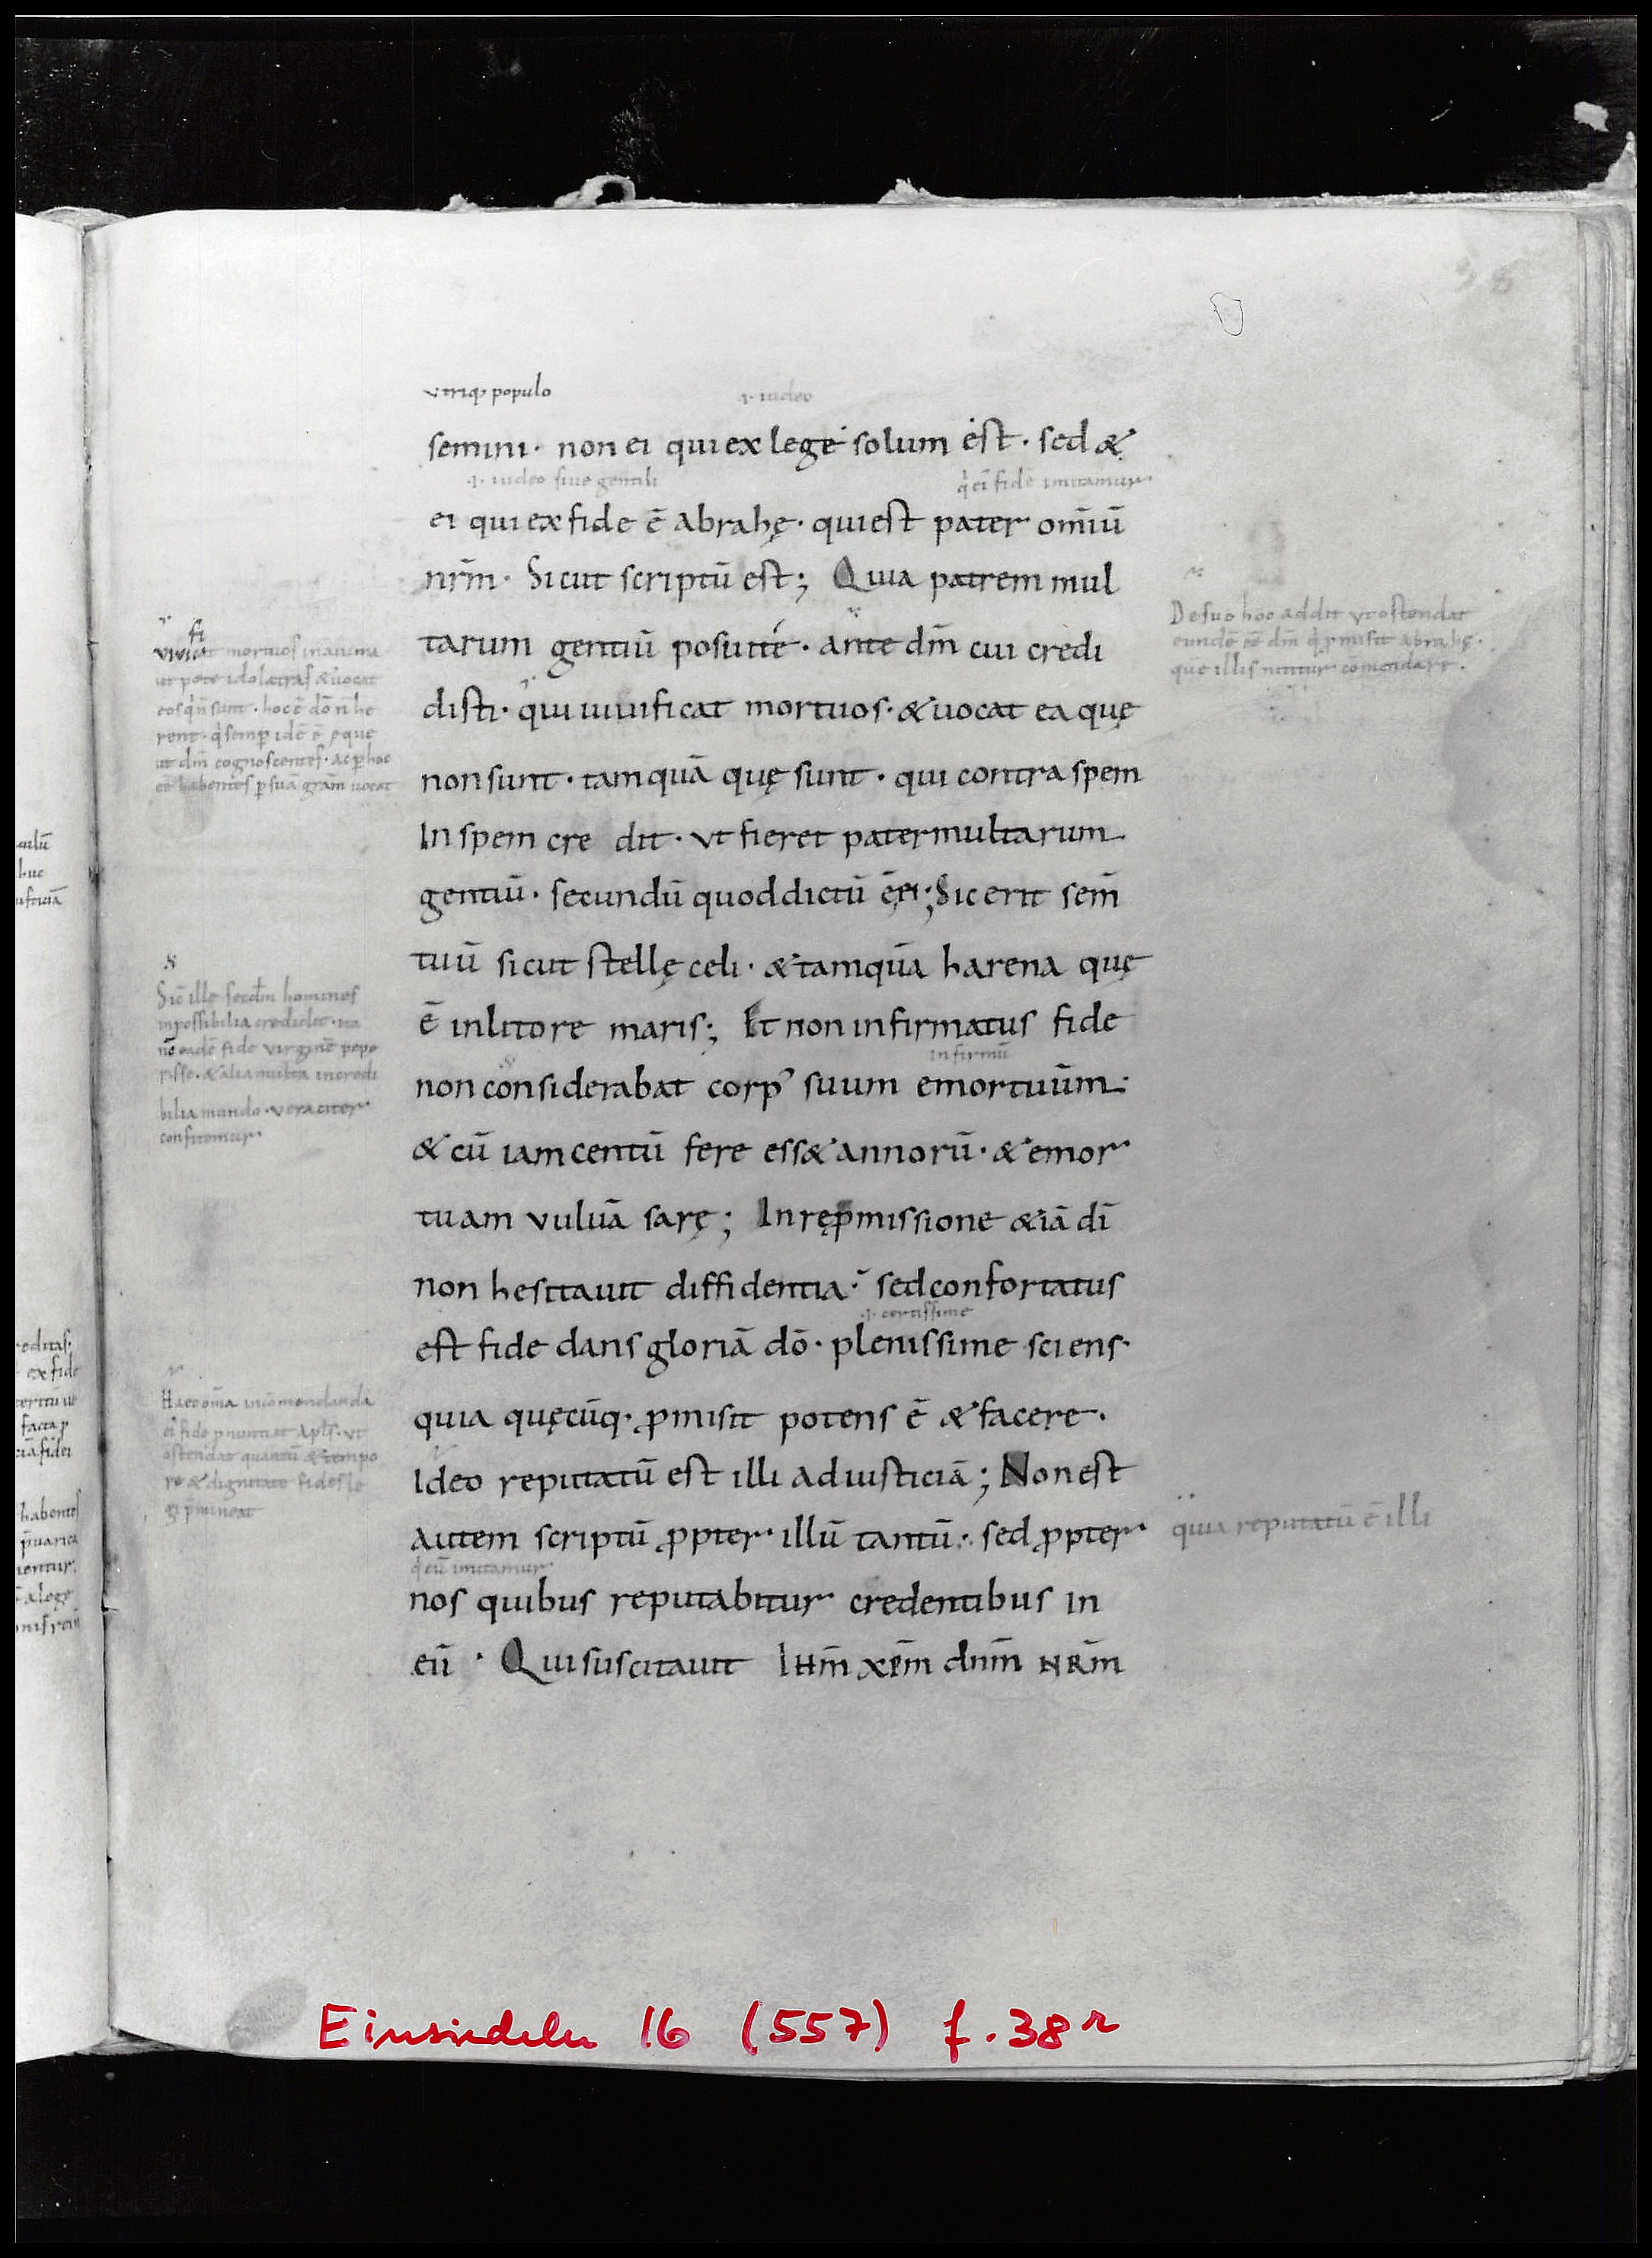 vtriq; populo
.i. iudeo
semini · non ei qui ex lege solum est · sed &
.i. iudeo siue gentili
qi ei fide imitamur
ei qui ex fide ē abrahę · qui est pater omīū
nr̄m · Sicut scriptū est ; Quia patrem mul
tarum gentiū posui te · ante dm̄ cui credi
disti · qui uiuificat mortuos · & uocat ea quę
non sunt · tamquā quę sunt · qui contra spem
In spem cre dit · vt fieret pater multarum
gentiū · secundū quod dictū ē ei ; Sic erit sem̄
tuū sicut stellę celi · & tamquā harena quę
ē in litore maris ; Et non infirmatus fide
infirmū
non considerabat corp' suum emortuum ·
& cū iam centū fere ess& annorū · & emor
tuam vuluā sarę ; In rep̄missione &iā dī
non hesitauit diffidentia · sed confortatus
.i. certissime
est fide dans gloriā dō · plenissime sciens ·
quia quęcūq · ꝓmisit potens ē & facere ·
Ideo reputatū est illi ad iusticiā ; Non est
autem scriptū ꝓpter illū tantū · sed ꝓpter
quia reputatū ē illi
qi eū imitamur
nos quibus reputabitur credentibus in
eū · Qui suscitauit Ihm̄ xp̄m dnm̄ nr̄m
De suo hoc addit vt ostendat
eundē eē dm̄ qi ꝓmisit abrahę ·
que illis nititur comendare ·
fi
viuicat mortuos in anima
ut pote idolatras & uocat
eos qi n̄ sunt · hoc ē dō n̄ he
rent · qi semp idē ē eque
ut dm̄ cognoscentes · ac p hoc
eē habentes p suā gr̄am uocat
Sic ille secdm̄ homines
inpossibilia credidit · ita
nē eadē fide virginē pepe
risse · & alia multa incredi
bilia mundo · veraciter
confitemur
Haec om̄a in cōmendanda
ei fide pnuntiat Apls · vt
ostendat quantū & tempo
re & dignitate fides le
gi pmineat
Einsiedeln 16 (557) f. 38r